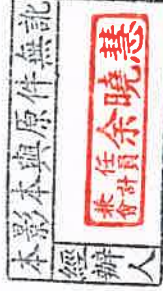 本影本與原件無訛
經辦人
兼任會計員 余曉慧